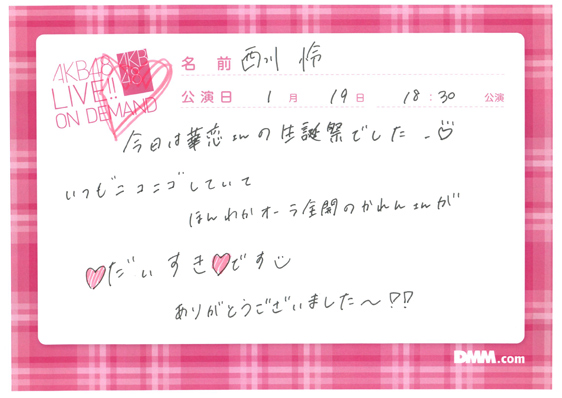 AKB48
LIVE!!
ON DEMAND
AKB
48
名前 西川 怜
公演日 1月 19日 18:30 公演
今日は華恋さんの生誕祭でした
いつもニコニコしていて
ほんわかオーラ全開のかれんさんが
♡だいすき♡です
ありがとうございました〜!!
DMM.com